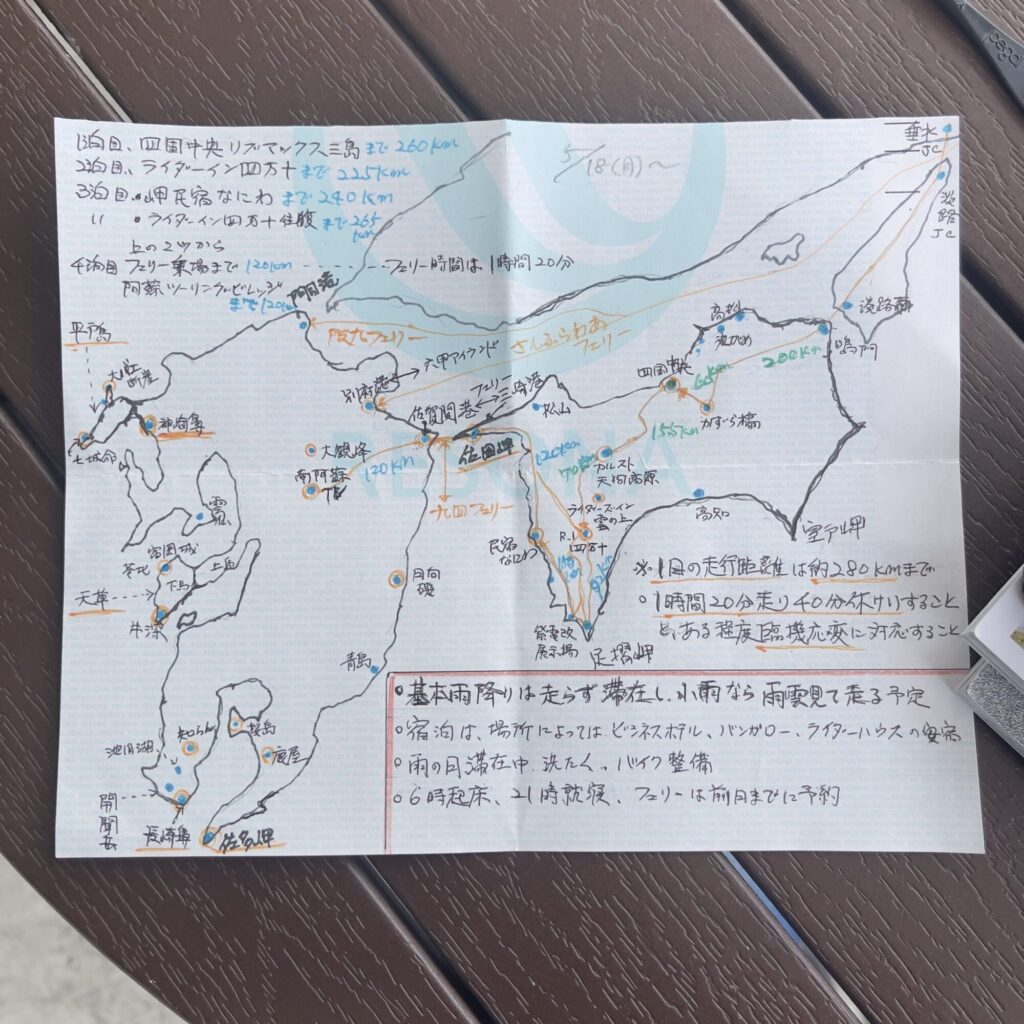 1泊目、四国中央リブマックス三島まで260km
2泊目、ライダーイン四万十まで225km
3泊目・岬民宿なにわまで240km
〃 ・ライダーイン四万十往復まで265km
上の2ツから
4泊目フェリー乗場まで120km ------ フェリー時間は1時間20分
阿蘇ツーリングビレッジ
まで120km
5/18(月)~
垂水
JC
淡路
JC
淡路
鳴門
200km
高松
四国中央
60km
かずら橋
155km
カルスト
天間高原
70km
120km
ライダーズイン
雲の上
R.I
四万十
民宿
なにわ
紫電改
展示場
足摺岬
高知
室戸岬
松山
佐田岬
フェリー
三崎港
佐賀関港
九四フェリー
さんふらわあ
フェリー
六甲アイランド
別府港
阪九フェリー
門司港
大観峰
南阿蘇
TV
120km
日向
磯
青島
平戸島
神崎鼻
富岡城
苓北
下島
上島
天草
牛深
桜島
鹿屋
知らん
池田湖
開聞岳
長崎鼻
佐多岬
※1日の走行距離は約280kmまで
○1時間20分走り40分休けいすること
と、ある程度臨機応変に対応すること
○基本雨降りは走らず滞在し、小雨なら雨雲見て走る予定
○宿泊は、場所によってはビジネスホテル、バンガロー、ライダーハウスの安宿
○雨の日滞在中、洗たく、バイク整備
○6時起床、21時就寝、フェリーは前日までに予約